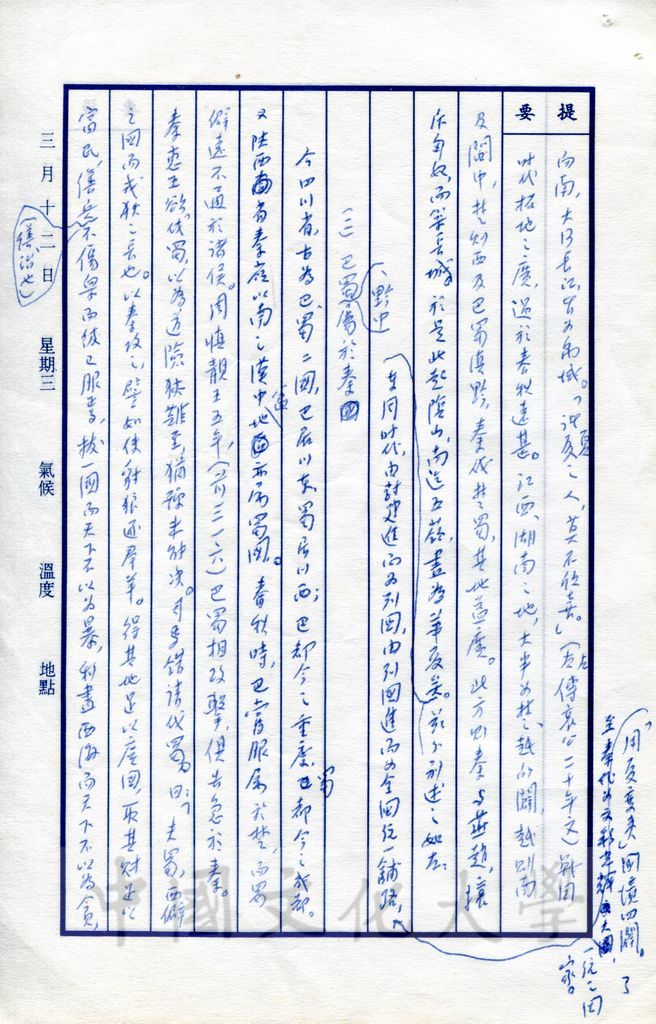 提要
向南,大江長江皆為內域。「諸夏之人,莫不欣喜。」(左傳哀公二十年文)戰國
時代拓地之廣,過於春秋遠甚。江西、湖南之地,大半為楚、越所闢,越則南
及閩中,楚則西及巴蜀滇黔,秦伐楚蜀,其地益廣。北方則秦與燕趙,攘
斥匈奴,而築長城,於是北起陰山,南迄五嶺,盡為華夏矣。茲分別述之如左:
(黔中
在同時代,由封建進而為列國,由列國進而為全國統一鋪路,
(一)巴蜀屬於秦國
今四川省,古為巴、蜀二國,巴居以東,蜀居以西;巴都今之重慶,蜀都今之成都。
又陝西省秦嶺以南之漢中地區亦屬蜀國。春秋時,巴嘗服屬於楚,而蜀
僻遠不通於諸侯。周慎靚王五年,(前三一六)巴蜀相攻擊,俱告急於秦。
秦惠王欲伐蜀,以為道險狹難至,猶豫未能決。司馬錯請伐蜀。曰:「夫蜀,西僻
之國而戎狄之長也。以秦攻之,譬如使豺狼逐群羊。得其地足以廣國,取其財足以
富民,繕兵不傷眾而彼已服焉,拔一國而天下不以為暴,利盡西海而天下不以為貪,
(繕治也)
「用夏變夷」,國境四闢。
至秦代為文
一統之國
家。
三月十二日 星期三 氣候 溫度 地點
中國文化大學